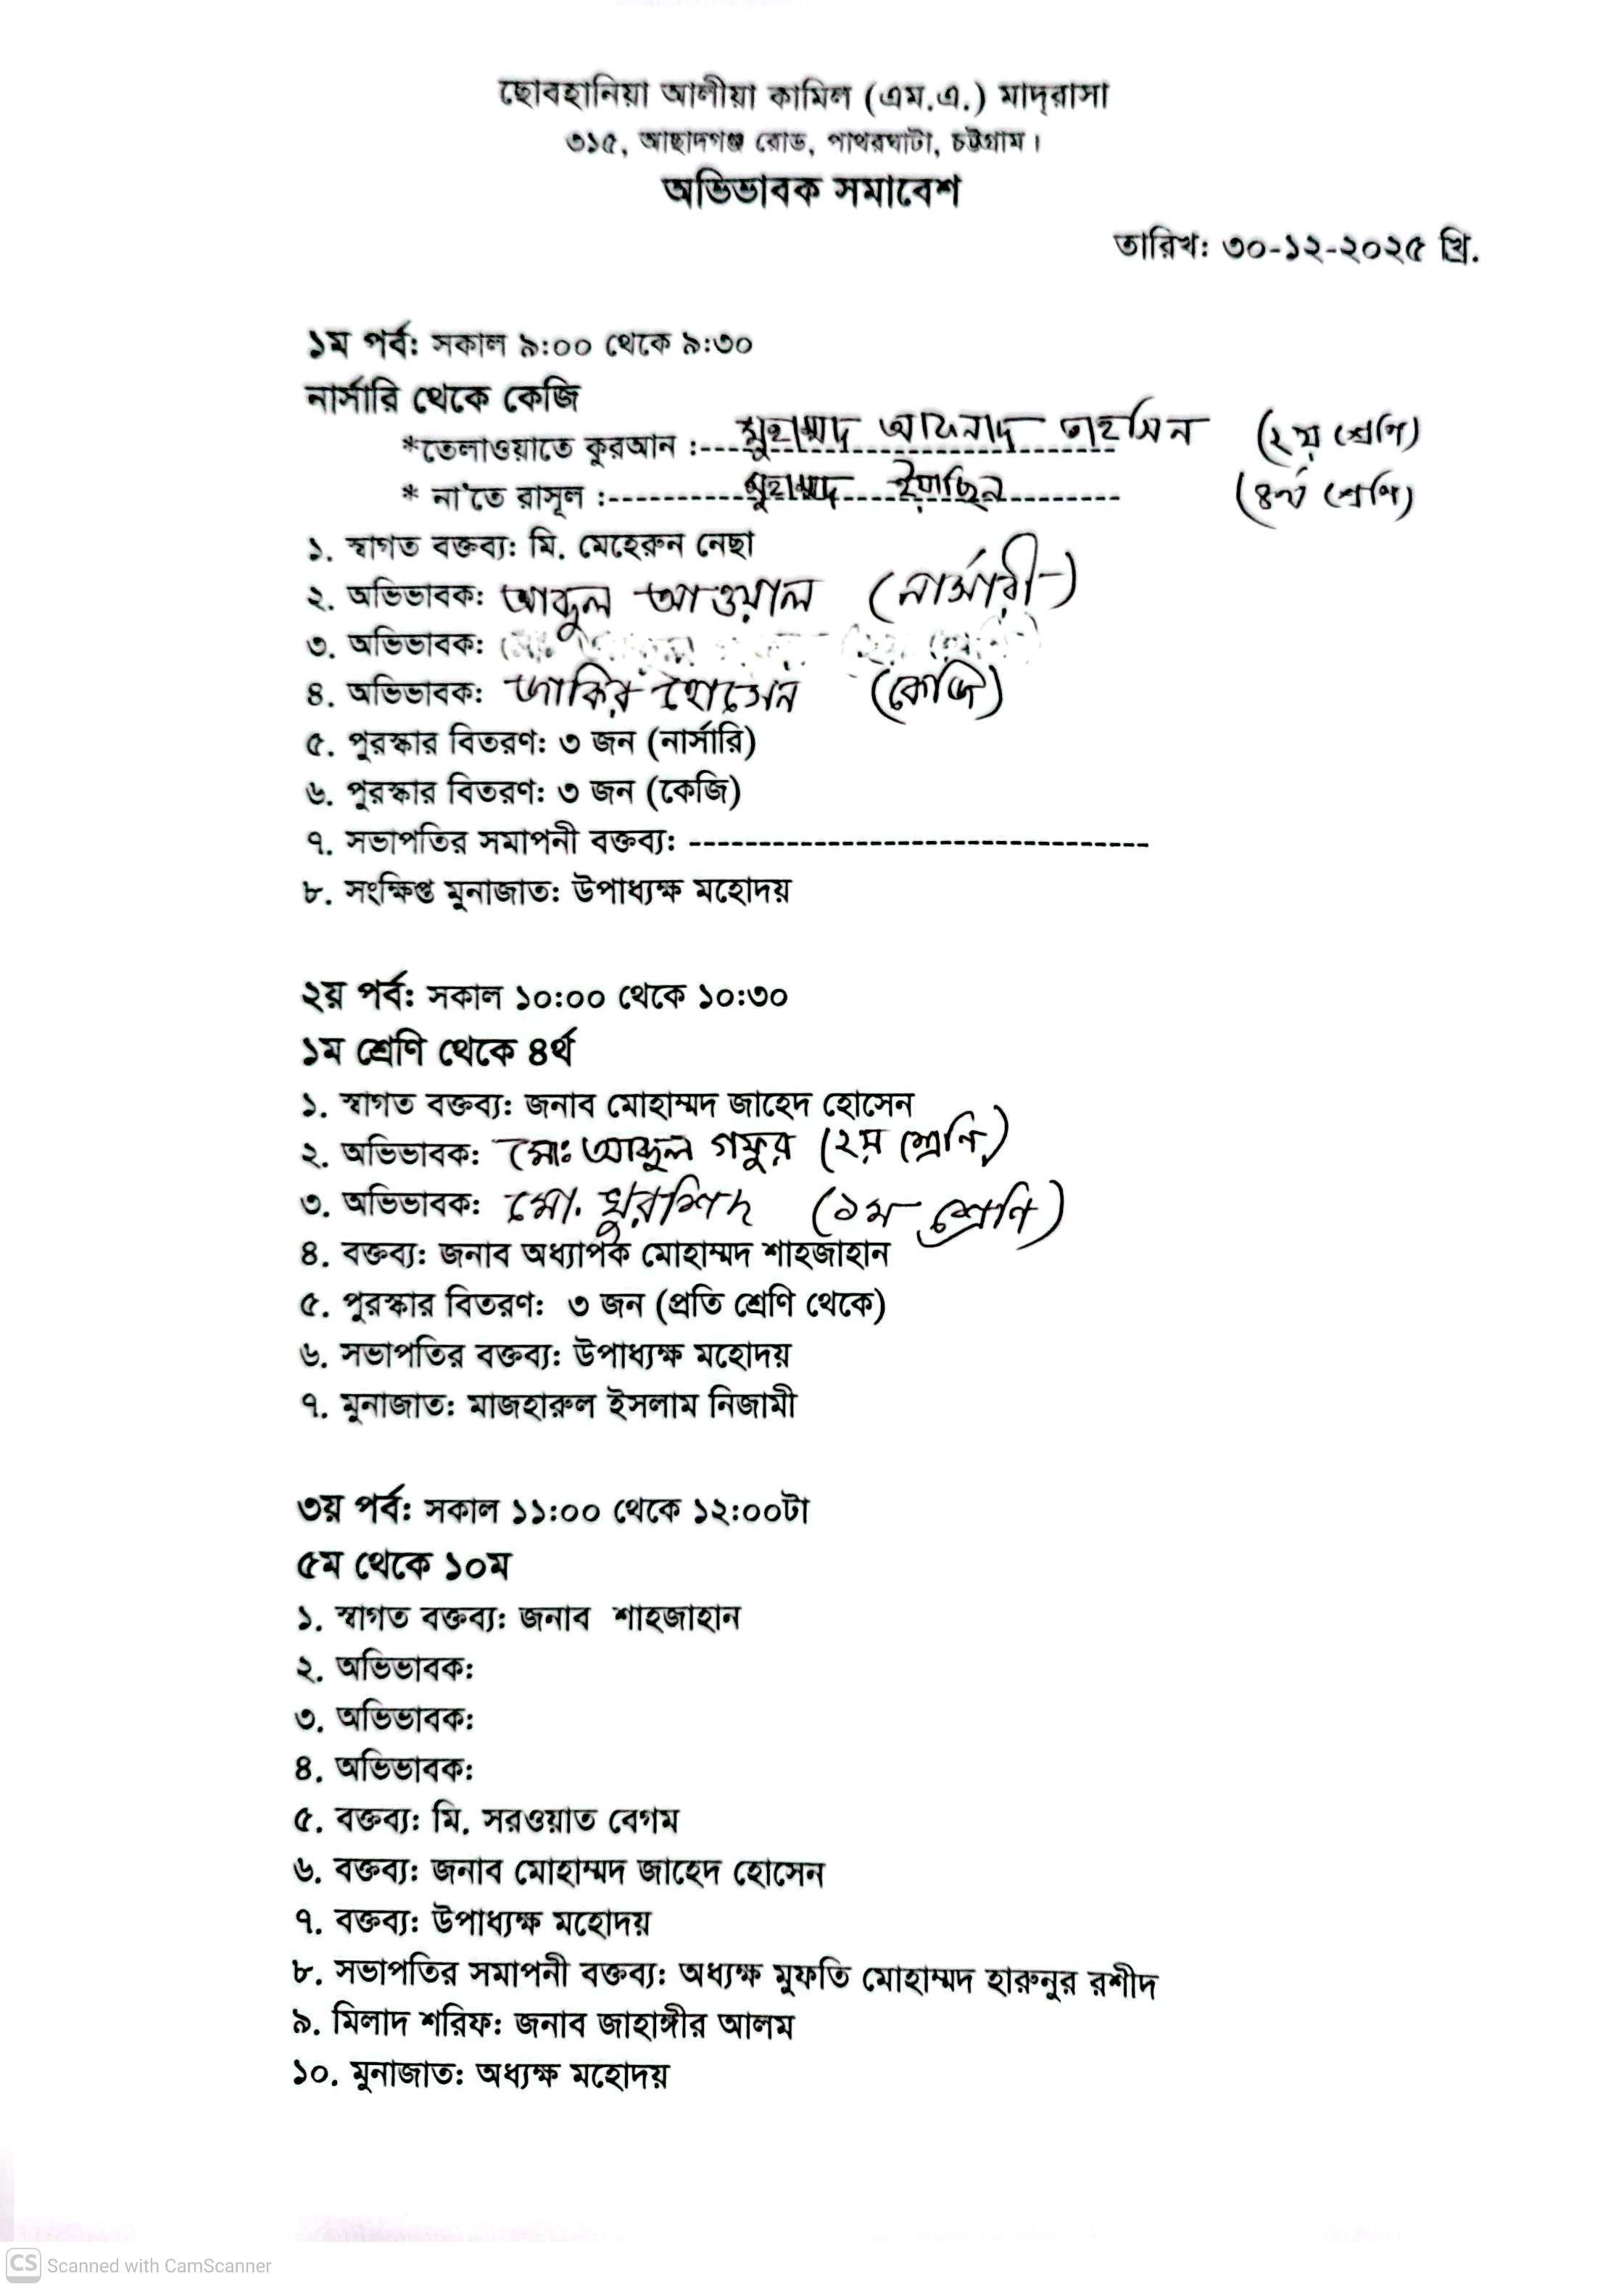 ছোবহানিয়া আলীয়া কামিল (এম.এ.) মাদ্‌রাসা
৩১৫, আছাদগঞ্জ রোড, পাথরঘাটা, চট্টগ্রাম।
অভিভাবক সমাবেশ
তারিখ: ৩০-১২-২০২৫ খ্রি.
১ম পর্ব: সকাল ৯:০০ থেকে ৯:৩০
নার্সারি থেকে কেজি
*তেলাওয়াতে কুরআন :---- মুহাম্মদ তাহসিন (২য় শ্রেণি)
* না'তে রাসূল :---- মুহাম্মদ ইয়াছিন (৪র্থ শ্রেণি)
১. স্বাগত বক্তব্য: মি. মেহেরুন নেছা
২. অভিভাবক: আব্দুল আওয়াল (নার্সারী)
৩. অভিভাবক:
৪. অভিভাবক: জাকির হোসেন (কেজি)
৫. পুরস্কার বিতরণ: ৩ জন (নার্সারি)
৬. পুরস্কার বিতরণ: ৩ জন (কেজি)
৭. সভাপতির সমাপনী বক্তব্য: ---------------------------------
৮. সংক্ষিপ্ত মুনাজাত: উপাধ্যক্ষ মহোদয়
২য় পর্ব: সকাল ১০:০০ থেকে ১০:৩০
১ম শ্রেণি থেকে ৪র্থ
১. স্বাগত বক্তব্য: জনাব মোহাম্মদ জাহেদ হোসেন
২. অভিভাবক: মোঃ আব্দুল গফুর (২য় শ্রেণি)
৩. অভিভাবক: মো. খুরশিদ (১ম শ্রেণি)
৪. বক্তব্য: জনাব অধ্যাপক মোহাম্মদ শাহজাহান
৫. পুরস্কার বিতরণ: ৩ জন (প্রতি শ্রেণি থেকে)
৬. সভাপতির বক্তব্য: উপাধ্যক্ষ মহোদয়
৭. মুনাজাত: মাজহারুল ইসলাম নিজামী
৩য় পর্ব: সকাল ১১:০০ থেকে ১২:০০টা
৫ম থেকে ১০ম
১. স্বাগত বক্তব্য: জনাব শাহজাহান
২. অভিভাবক:
৩. অভিভাবক:
৪. অভিভাবক:
৫. বক্তব্য: মি. সরওয়াত বেগম
৬. বক্তব্য: জনাব মোহাম্মদ জাহেদ হোসেন
৭. বক্তব্য: উপাধ্যক্ষ মহোদয়
৮. সভাপতির সমাপনী বক্তব্য: অধ্যক্ষ মুফতি মোহাম্মদ হারুনুর রশীদ
৯. মিলাদ শরিফ: জনাব জাহাঙ্গীর আলম
১০. মুনাজাত: অধ্যক্ষ মহোদয়
CS Scanned with CamScanner